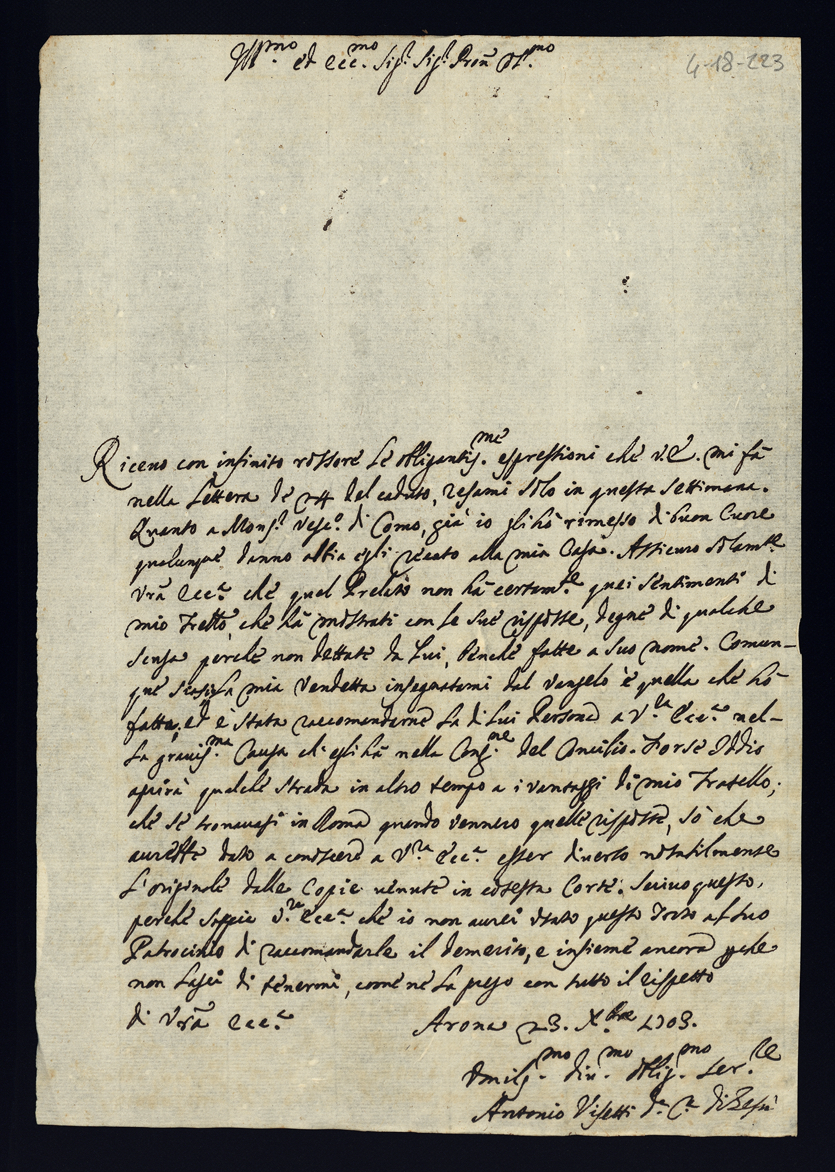 Ill.mo ed Ecc.mo Sig.r Sig.r Pron Col.mo
4-18-223
Riceuo con infinito rossore le obligantis.me espressioni che V.E. mi fà
nella Lettera de 24 del caduto, resami solo in questa settimana.
Quanto a Mons.r Vesc.o di Como, già io gli hò rimesso di buon Cuore
qualunque danno abbia egli recato alla mia Casa. Assicuro solam.te
Vrã Ecc.a che quel Prelato non hà certam.te quei sentimenti di
mio Fratto, che hà mostrati con le sue risposte, degne di qualche
scusa perche non dettate da Lui, benche fatte a suo nome. Comun-
que siasi La mia Vendetta insegnatami dal Vangelo è quella che hò
fatta, ed è stata raccomandarne La di Lui Persona a V.ra Ecc.a nel-
La grauis.ma Causa ch'egli hà nella Cong.ne del Concilio. Forse Iddio
aprirà qualche strada in altro tempo a i vantaggi di mio Fratello;
che se trouauasi in Roma quando vennero quelle risposte, sò che
aurebbe dato a conoscere a V.ra Ecc.a esser diuerso notabilmente
L'originale dalle Copie uenute in cotesta Corte. Scriuo questo,
perche sappia V.ra Ecc.a che io non aurei usato questo Torto al suo
Patrocinio di raccomandarle il demerito, e insieme ancora perche
non Lasci di tenermi, come ne La prego con tutto il rispetto
di Vrã Ecc.a Arona 23. X.bre 1703.
Vmilis.mo diu.mo oblig.mo Ser.re
Antonio Visetti d.a C.a di Gesù